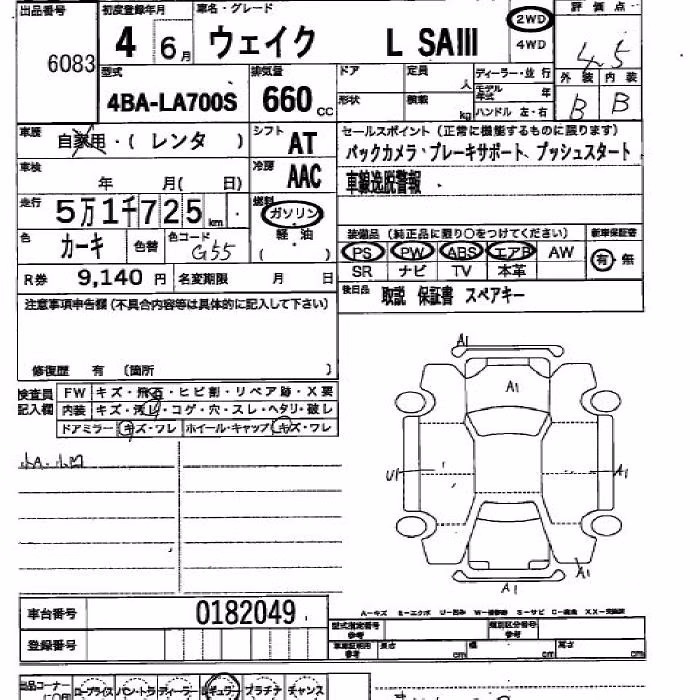 出品番号 初度登録年月 車名・グレード 2WD 評価点
6083 4 6月 ウェイク L SAIII 4WD 4.5
型式 排気量 ドア 定員 人 ディーラー・並行 外装 内装
4BA-LA700S 660cc 形状 積載 kg モデル年式 年 B B
ハンドル 左・右
車歴 自家用・(レンタ) シフト AT セールスポイント(正常に機能するものに限ります)
バックカメラ、ブレーキサポート、プッシュスタート
車検 年 月( 日) 冷房 AAC 車線逸脱警報
走行 5万1千725km 燃料 ガソリン
軽・油
( )
色 カーキ 色替 色コード G55
装備品(純正品に限り○をつけてください) 新車保証書
PS PW ABS エアB AW 有・無
SR ナビ TV 本革
R券 9,140円 名変期限 月 日 後日品 取説 保証書 スペアキー
注意事項申告欄(不具合内容等は具体的に記入して下さい)
修復歴 有 (箇所 )
検査員記入欄 FW キズ・飛石・ヒビ割・リペア跡・X要
内装 キズ・汚れ・コゲ・穴・スレ・ヘタリ・破レ
ドアミラー キズ・ワレ ホイール・キャップ キズ・ワレ
小A.小凹
A1
A1
U1 A1
A1
A1
車台番号 0182049
A-キズ E-エクボ U-凹み
登録番号
型式指定番号 参考 類別区分番号 参考
参考 長さ cm 幅 cm 高さ cm
出品コーナー ロープライス バントラ ディーラー レギュラー プラチナ チャンス